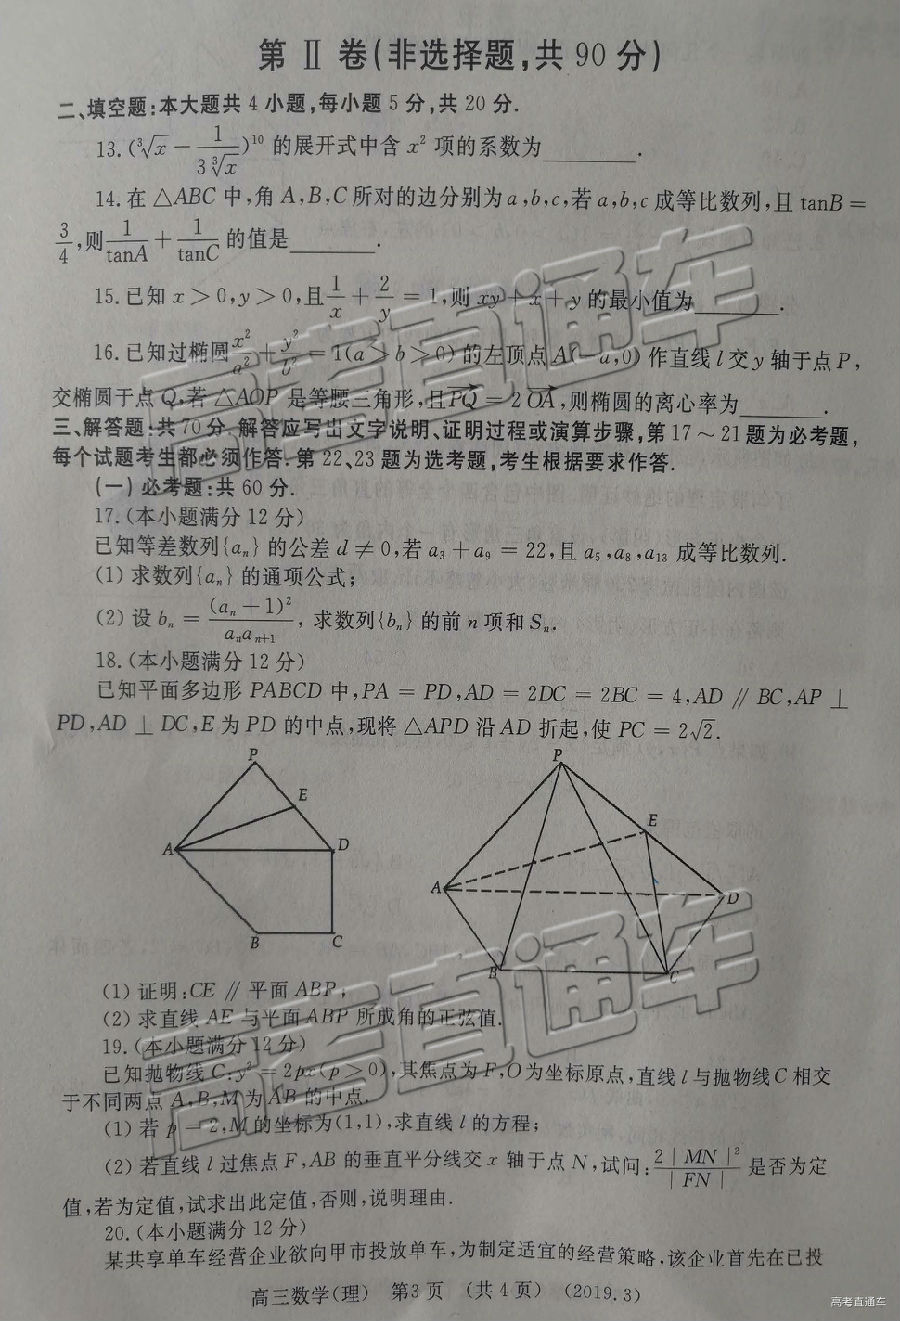 第 Ⅱ 卷(非选择题,共 90 分)
二、填空题:本大题共 4 小题,每小题 5 分,共 20 分.
13.(∛x − 1/(3∛x))¹⁰ 的展开式中含 x² 项的系数为________.
14.在 △ABC 中,角 A,B,C 所对的边分别为 a,b,c,若 a,b,c 成等比数列,且 tanB =
3/4,则 1/tanA + 1/tanC 的值是________.
15.已知 x > 0,y > 0,且 1/x + 2/y = 1,则 xy + x + y 的最小值为________.
16.已知过椭圆 x²/a² + y²/b² = 1(a > b > 0) 的左顶点 A(−a,0) 作直线 l 交 y 轴于点 P,
交椭圆于点 Q,若 △AOP 是等腰三角形,且 PQ→ = 2 OA→,则椭圆的离心率为________.
三、解答题:共 70 分.解答应写出文字说明、证明过程或演算步骤,第 17 ～ 21 题为必考题,
每个试题考生都必须作答.第 22、23 题为选考题,考生根据要求作答.
(一) 必考题:共 60 分.
17.(本小题满分 12 分)
已知等差数列{aₙ} 的公差 d ≠ 0,若 a₃ + a₉ = 22,且 a₅,a₈,a₁₃ 成等比数列.
(1) 求数列{aₙ} 的通项公式;
(2) 设 bₙ = (aₙ − 1)²/(aₙaₙ₊₁), 求数列{bₙ} 的前 n 项和 Sₙ.
18.(本小题满分 12 分)
已知平面多边形 PABCD 中,PA = PD,AD = 2DC = 2BC = 4,AD ∥ BC,AP ⊥
PD,AD ⊥ DC,E 为 PD 的中点,现将 △APD 沿 AD 折起,使 PC = 2√2.
P
E
A
D
B
C
P
E
A
D
B
C
(1) 证明:CE ∥ 平面 ABP;
(2) 求直线 AE 与平面 ABP 所成角的正弦值.
19.(本小题满分 12 分)
已知抛物线 C:y² = 2px(p > 0),其焦点为 F,O 为坐标原点,直线 l 与抛物线 C 相交
于不同两点 A,B,M 为 AB 的中点.
(1) 若 p = 2,M 的坐标为(1,1),求直线 l 的方程;
(2) 若直线 l 过焦点 F,AB 的垂直平分线交 x 轴于点 N,试问:2|MN|²/|FN| 是否为定
值,若为定值,试求出此定值,否则,说明理由.
20.(本小题满分 12 分)
某共享单车经营企业欲向甲市投放单车,为制定适宜的经营策略,该企业首先在已投
高三数学(理) 第3页 (共4页) (2019.3)
高考直通车
高考直通车
高考直通车